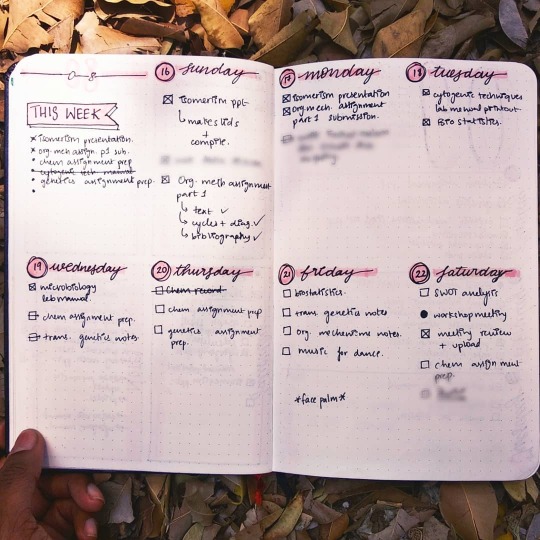 THIS WEEK
isomerism presentation.
org. mech assign. p1 sub.
chem assignment prep
cytogenic tech manual
genetics assignment prep.
16 sunday
isomerism ppt
makeslids
+
compile.
Org. mech assignment
part 1
text ✓
cycles + diag. ✓
bibliography ✓
17 monday
isomerism presentation
org mech. assignment
part 1 submission.
18 tuesday
cytogenic techniques
lab manual printout
Bio statistics.
19 wednesday
microbiology
lab manual.
chem assignment prep.
trans. genetics notes.
20 thursday
chem record
chem assignment prep
genetics assignment
prep.
21 friday
biostatistics.
trans. genetics notes
org. mechanisms notes.
music for dance.
*face palm*
22 saturday
SWOT analysis
workshop meeting
meeting review
+ upload
chem assignment
prep.